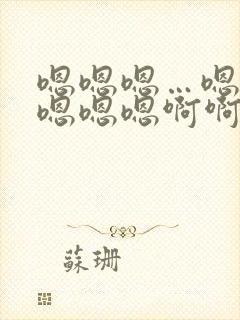 嗯嗯嗯…嗯
嗯嗯嗯啊啊
蘇珊